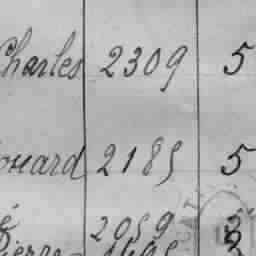 Charles 2309 5
ouard 2185 5
é 2059 5
Pierre